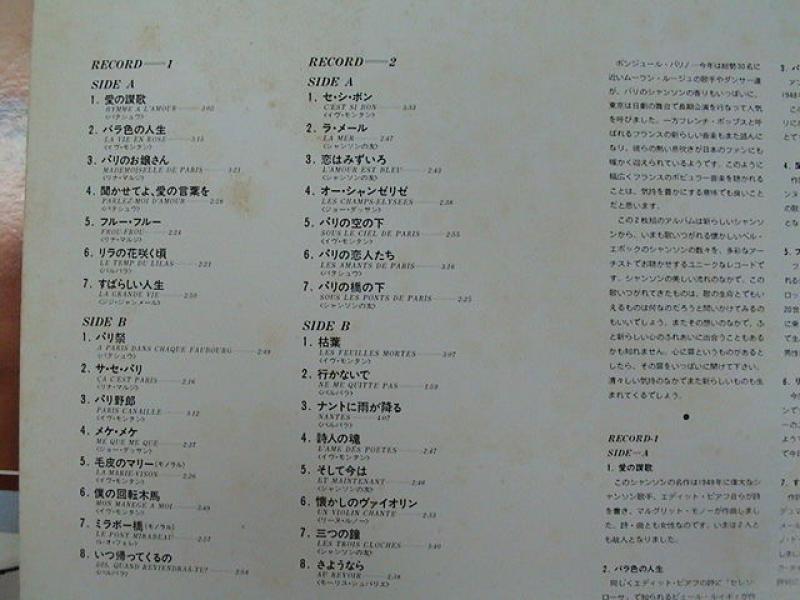 RECORD—1
SIDE A
1. 愛の讃歌
HYMNE A L'AMOUR 3:05
(パタシュウ)
2. バラ色の人生
LA VIE EN ROSE 3:15
(イヴ・モンタン)
3. パリのお嬢さん
MADEMOISELLE DE PARIS 3:21
(リナ・マルジ)
4. 聞かせてよ、愛の言葉を
PARLEZ-MOI D'AMOUR
(パタシュウ)
5. フルー・フルー
FROU-FROU 2:24
(リナ・マルジ)
6. リラの花咲く頃
LE TEMP DU LILAS 2:21
(バルバラ)
7. すばらしい人生
LA GRANDE VIE 2:50
(ジジ・ジャンメール)
SIDE B
1. パリ祭
A PARIS DANS CHAQUE FAUBOURG 2:49
(パタシュウ)
2. サ・セ・パリ
ÇA C'EST PARIS 2:16
(リナ・マルジ)
3. パリ野郎
PARIS CANAILLE 3:12
(イヴ・モンタン)
4. メケ・メケ
ME QUE ME QUE 2:37
(ジョー・ダッサン)
5. 毛皮のマリー(モノラル)
LA MARIE-VISON 2:26
(イヴ・モンタン)
6. 僕の回転木馬
MON MANEGE A MOI 2:49
(イヴ・モンタン)
7. ミラボー橋(モノラル)
LE PONT MIRABEAU 2:57
(レオ・フェレ)
8. いつ帰ってくるの
DIS, QUAND REVIENDRAS-TU?
(バルバラ)
RECORD—2
SIDE A
1. セ・シ・ボン
C'EST SI BON 3:33
(イヴ・モンタン)
2. ラ・メール
LA MER 2:47
(シャンソンの友)
3. 恋はみずいろ
L'AMOUR EST BLEU 2:43
(シャンソンの友)
4. オー・シャンゼリゼ
LES CHAMPS-ELYSEES 2:38
(ジョー・ダッサン)
5. パリの空の下
SOUS LE CIEL DE PARIS 2:55
(イヴ・モンタン)
6. パリの恋人たち
LES AMANTS DE PARIS 3:16
(パタシュウ)
7. パリの橋の下
SOUS LES PONTS DE PARIS 2:25
(シャンソンの友)
SIDE B
1. 枯葉
LES FEUILLES MORTES 3:07
(イヴ・モンタン)
2. 行かないで
NE ME QUITTE PAS 1:59
(バルバラ)
3. ナントに雨が降る
NANTES 4:07
(バルバラ)
4. 詩人の魂
L'AME DES POETES 2:47
(イヴ・モンタン)
5. そして今は
ET MAINTENANT 2:46
(シャンソンの友)
6. 懐かしのヴァイオリン
UN VIOLIN CHANTE 2:53
(リーヌ・ルノー)
7. 三つの鐘
LES TROIS CLOCHES 3:40
(シャンソンの友)
8. さようなら
AU REVOIR 2:38
(モーリス・シュバリエ)
ボンジュール・パリ!―今年は総勢30名に
近いムーラン・ルージュの歌手やダンサー達
が、パリのシャンソンの香りもいっぱいに、
東京は日劇の舞台で長期公演を行なって人気
を呼びました。一方フレンチ・ポップスと呼
ばれるフランスの新らしい音楽もまた盛んに
なり、彼らの熱い息吹きが日本のファンにも
暖かく迎えられているようです。このように
幅広くフランスのポピュラー音楽を聴かれる
ことは、気持を豊かにする意味でも良いこと
だと思います。
この2枚組のアルバムは新らしいシャンソ
ンから、いまも歌いつがれる懐かしいベル・
エポックのシャンソンの数々を、多彩なアー
チストでお聴かせするユニークなレコードで
す。シャンソンの美しい流れのなかで、この
歌いつがれてきたものは、歌の生命とでもい
えるものは何なのだろうと問いかけてみるの
もいいでしょう。またその想いのなかで、ふ
と新らしい心のふれあいに出合うこともある
かも知れません。心に扉というものがあると
したら、その扉をいっぱいに開けて下さい。
清々しい気持のなかでまた新らしいものも生
まれてくるでしょう。
RECORD-1
SIDE—A
1. 愛の讃歌
このシャンソンの名作は1949年に偉大なシ
ャンソン歌手、エディット・ピアフ自らが詩
を書き、マルグリット・モノーが作曲しまし
た。詩・曲とも女性なのです。いまは2人と
も故人となりました。
2. バラ色の人生
同じくエディット・ピアフの詩に「セレソ
ローサ」で知られるピェール・ルイギィが作